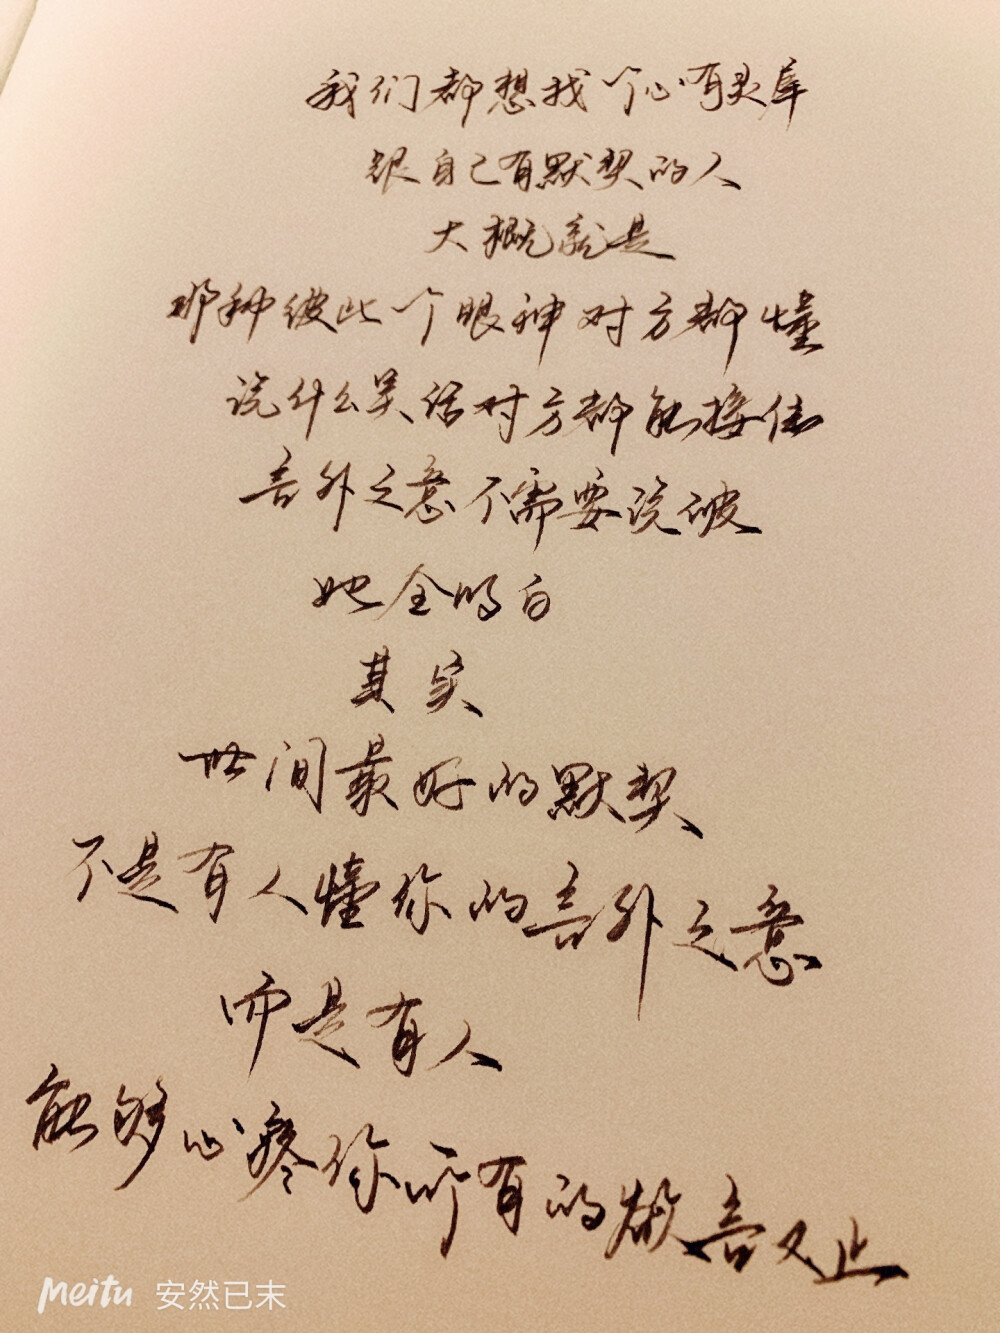 我们都想找个心有灵犀
跟自己有默契的人
大概就是
那种彼此一个眼神对方都懂
说什么笑话对方都能接住
言外之意不需要说破
她全明白
其实
世间最好的默契
不是有人懂你的言外之意
而是有人
能够心疼你所有的欲言又止
meitu 安然已末